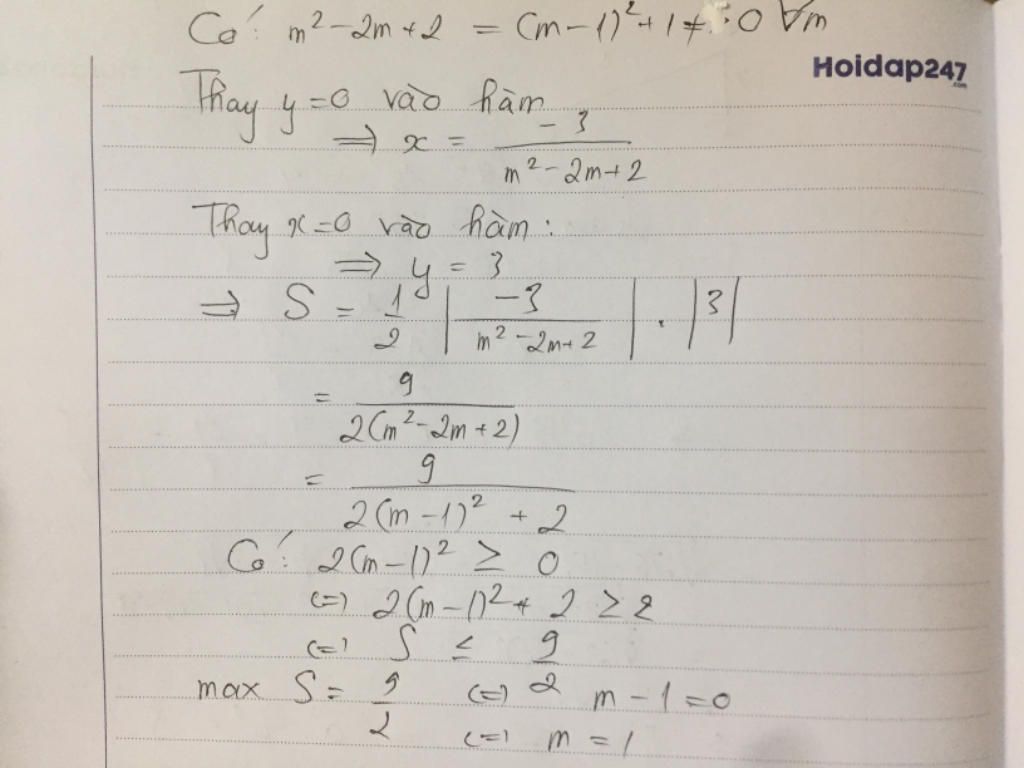 Có: m² - 2m + 2 = (m-1)² + 1 ≠ 0 ∀m
Hoidap247
.com
Thay y = 0 vào hàm
⇒ x = -3 / (m² - 2m + 2)
Thay x = 0 vào hàm:
⇒ y = 3
⇒ S = 1/2 | -3 / (m² - 2m + 2) | . |3|
= 9 / 2(m² - 2m + 2)
= 9 / 2(m - 1)² + 2
Có: 2(m - 1)² ≥ 0
(=) 2(m - 1)² + 2 ≥ 2
(=) S ≤ 9/2
max S = 9/2 (=) m - 1 = 0
(=) m = 1